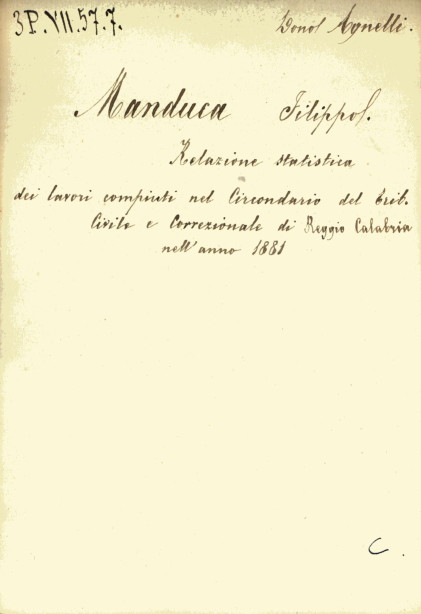 3P.VII.57.7.
Dono Agnelli.
Manduca Filippo.
Relazione statistica
dei lavori compiuti nel Circondario del Trib.
Civile e Correzionale di Reggio Calabria
nell'anno 1881
C.